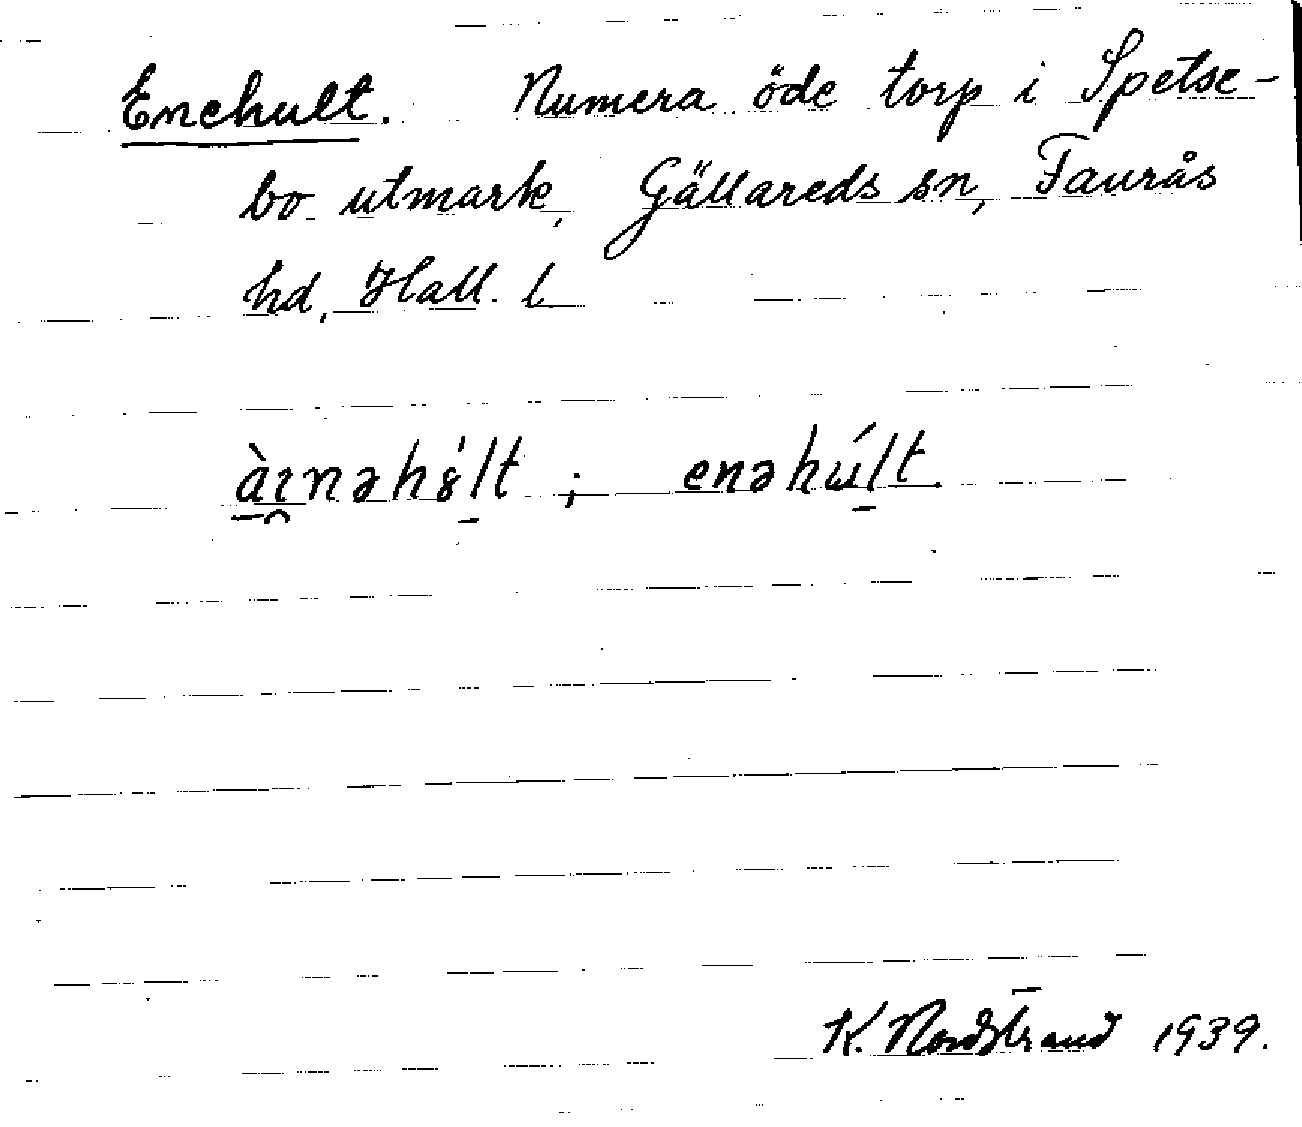 Enehult. Numera öde torp i Spetse-
bo utmark, Gällareds sn, Faurås
hd, Hall. l
àɪnəhɞ́lt ; enəhúlt.
K. Nordstrand 1939.